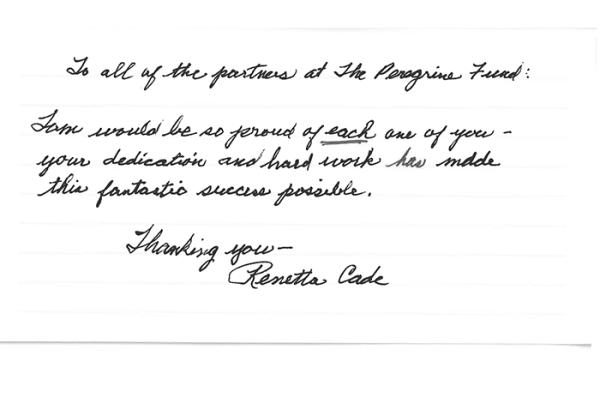 To all of the partners at The Peregrine Fund:
Tom would be so proud of each one of you -
your dedication and hard work has made
this fantastic success possible.
Thanking you -
Renetta Cade